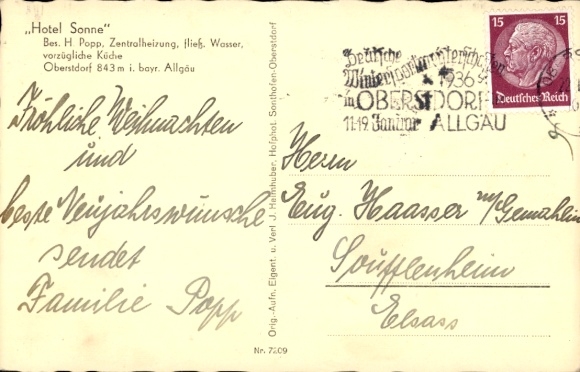 „Hotel Sonne"
Bes. H. Popp, Zentralheizung, fließ. Wasser,
vorzügliche Küche
Oberstdorf 843 m i. bayr. Allgäu
Fröhliche Weihnachten
und
beste Neujahrswünsche
sendet
Familie Popp
Orig.-Aufn. Eigent. u. Verl. J. Heimhuber, Hofphot. Sonthofen-Oberstdorf
Nr. 7209
Deutsche
Wintersportmeisterschaften
1936
in OBERSTDORF
11-19. Januar ALLGÄU
15 15
Deutsches Reich
Herrn
Eug. Haasser m/Gemahlin
Soufflenheim
Elsass